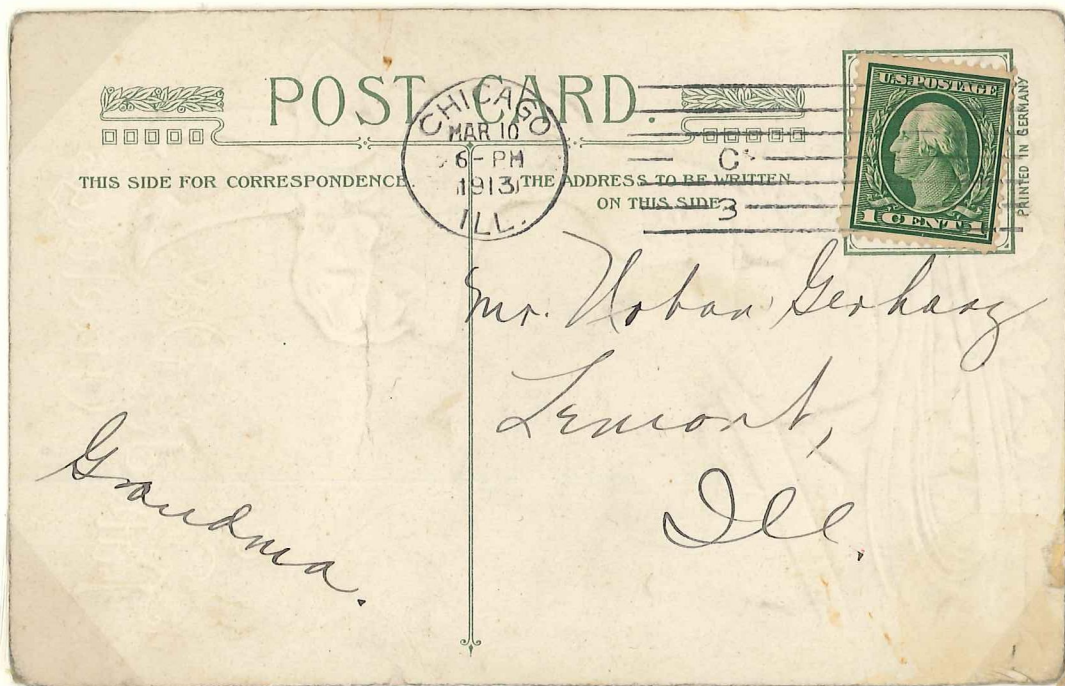 POST CARD.
CHICAGO
MAR 10
6-PM
1913
ILL.
C
3
U.S. POSTAGE
1 CENT 1
PRINTED IN GERMANY
THIS SIDE FOR CORRESPONDENCE
THE ADDRESS TO BE WRITTEN
ON THIS SIDE
Mr. Urban Gerharz
Lemont,
Ill.
Grandma.